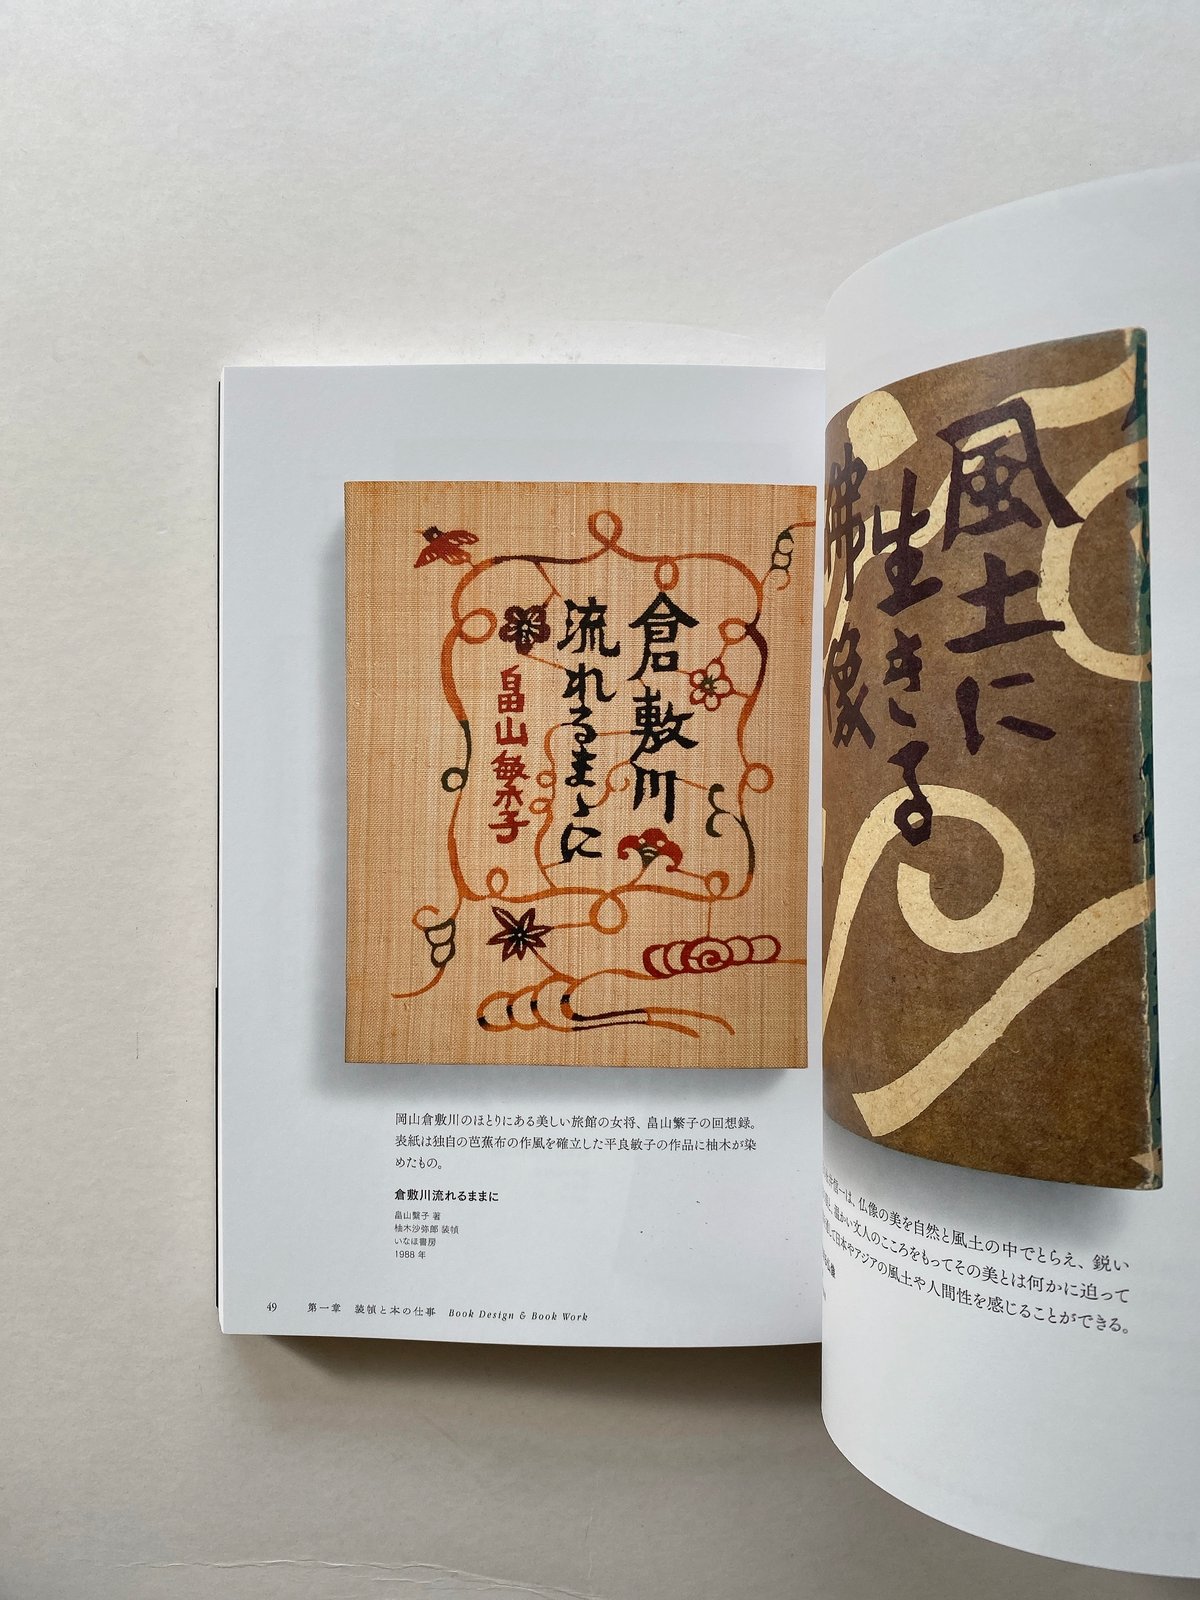 倉敷川
流れるまゝに
畠山繁子
岡山倉敷川のほとりにある美しい旅館の女将、畠山繁子の回想録。
表紙は独自の芭蕉布の作風を確立した平良敏子の作品に柚木が染
めたもの。
倉敷川流れるままに
畠山繫子 著
柚木沙弥郎 装幀
いなほ書房
1988 年
49 第一章 装幀と本の仕事 Book Design & Book Work
風土に
生きる
佛像
は、仏像の美を自然と風土の中でとらえ、鋭い
温かい文人のこころをもってその美とは何かに迫って
て日本やアジアの風土や人間性を感じることができる。